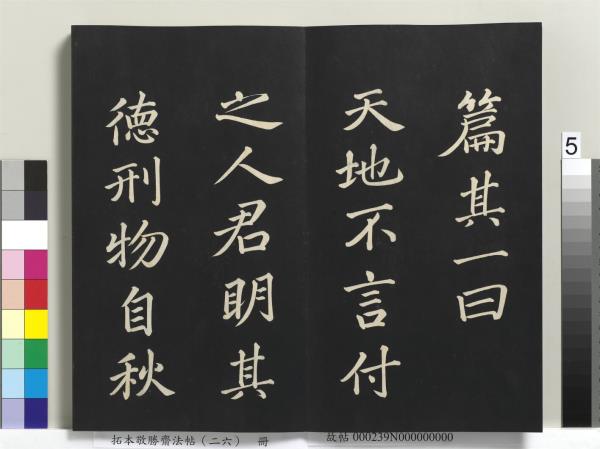 篇其一曰
天地不言付
之人君明其
德刑物自秋
5
拓本敬勝齋法帖(二六) 冊
故帖 000239N000000000